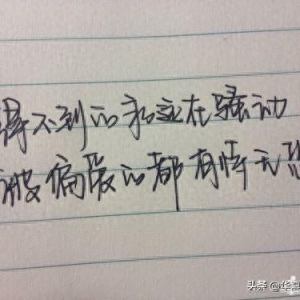 得不到的永远在骚动
被偏爱的都有恃无恐
头条@华